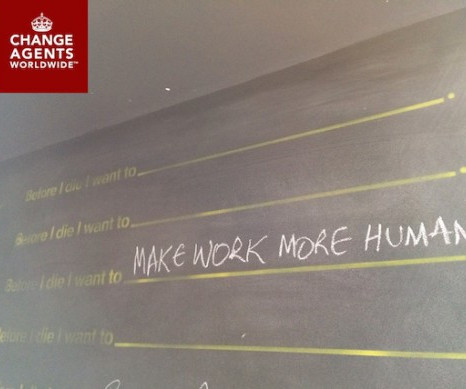 CHANGE
AGENTS
WORLDWIDE™
Before I die I want to
Before I die I want to
MAKE WORK MORE HUMAN
Before I die I want to
Before I die I want to